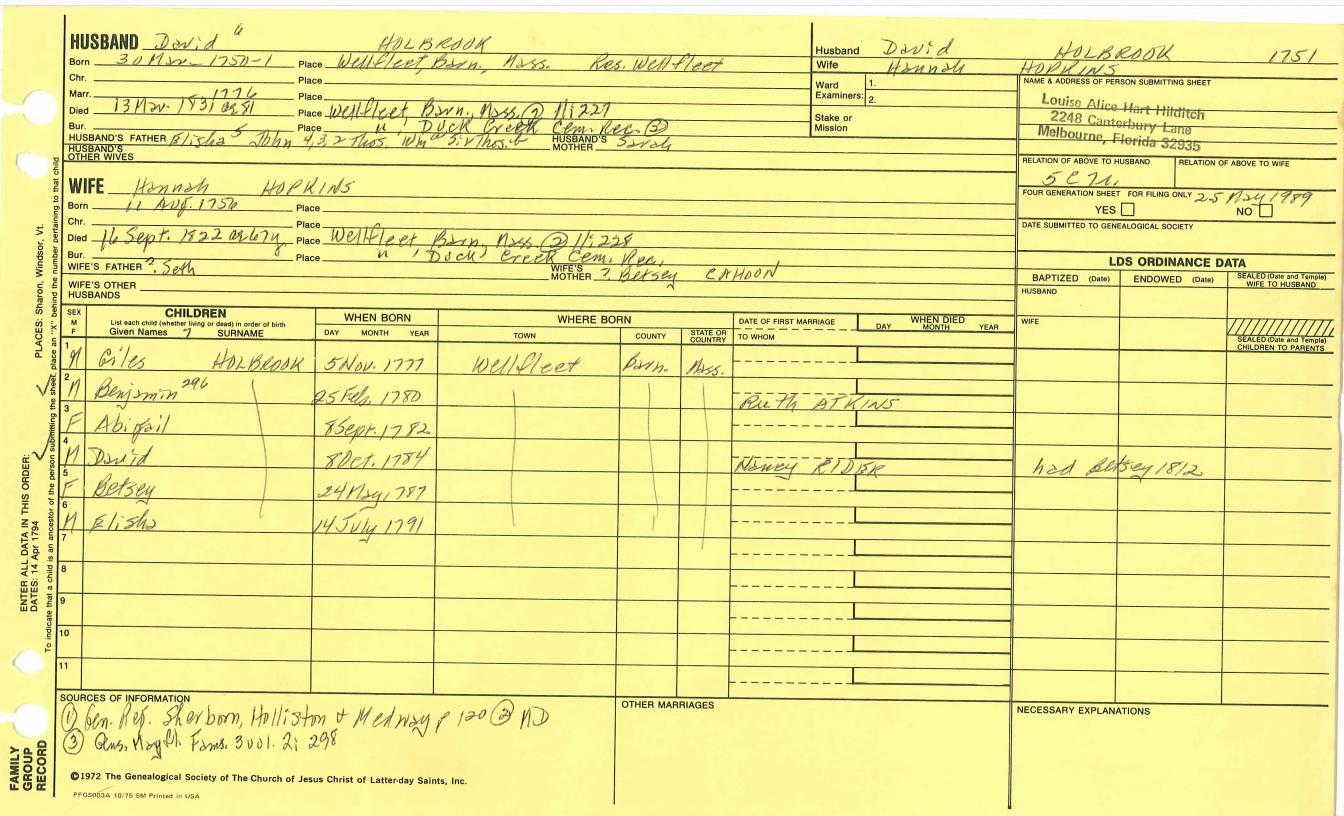 HUSBAND David 6 HOLBROOK
Born 30 Mar 1750-1 Place Wellfleet, Barn., Mass. Res. Wellfleet
Chr. Place
Marr. 1776 Place
Died 13 Mar. 1831 ag 81 Place Wellfleet, Barn., Mass. ② 11:227
Bur. Place " , Duck Creek Cem. Rec. ②
HUSBAND'S FATHER Elisha 5 John 4, 3, 2 Thos. Wm HUSBAND'S MOTHER Sarah
HUSBAND'S OTHER WIVES
Husband David HOLBROOK 1751
Wife Hannah HOPKINS
Ward Examiners: 1.
2.
Stake or Mission
NAME & ADDRESS OF PERSON SUBMITTING SHEET
Louise Alice Hart Hilditch
2248 Canterbury Lane
Melbourne, Florida 32935
RELATION OF ABOVE TO HUSBAND RELATION OF ABOVE TO WIFE
5C
FOUR GENERATION SHEET FOR FILING ONLY 25 May 1989
YES NO
DATE SUBMITTED TO GENEALOGICAL SOCIETY
WIFE Hannah HOPKINS
Born 11 Aug. 1756 Place
Chr. Place
Died 16 Sept. 1822 ag 67y Place Wellfleet, Barn., Mass ② 11:228
Bur. Place " , Duck Creek Cem. Rec.
WIFE'S FATHER ?. Seth WIFE'S MOTHER ?. Betsey CAHOON
WIFE'S OTHER HUSBANDS
LDS ORDINANCE DATA
BAPTIZED (Date) ENDOWED (Date) SEALED (Date and Temple) WIFE TO HUSBAND
HUSBAND
WIFE
SEALED (Date and Temple) CHILDREN TO PARENTS
SEX M F CHILDREN WHEN BORN WHERE BORN DATE OF FIRST MARRIAGE WHEN DIED
List each child (whether living or dead) in order of birth
Given Names 7 SURNAME DAY MONTH YEAR TOWN COUNTY STATE OR COUNTRY TO WHOM DAY MONTH YEAR
1 M Giles HOLBROOK 5 Nov. 1777 Wellfleet Barn. Mass.
2 M Benjamin 296 25 Feb. 1780 Ruth ATKINS
3 F Abigail 8 Sept. 1782
4 M David 8 Oct. 1784 Nancy RIDER had Betsey 1812
5 F Betsey 24 May, 1787
6 M Elisha 14 July 1791
7
8
9
10
11
SOURCES OF INFORMATION
① Gen. Reg. Sherborn, Holliston & Medway p 120 ② MD
③ Gens. Mayfl. Fams. 3 vol. 2: 298
OTHER MARRIAGES
NECESSARY EXPLANATIONS
©1972 The Genealogical Society of The Church of Jesus Christ of Latter-day Saints, Inc.
PFGS003A 10/75 5M Printed in USA
FAMILY GROUP RECORD
ENTER ALL DATA IN THIS ORDER:
DATES: 14 Apr 1794
PLACES: Sharon, Windsor, Vt.
To indicate that a child is an ancestor of the person submitting the sheet, place an "X" behind the number pertaining to that child